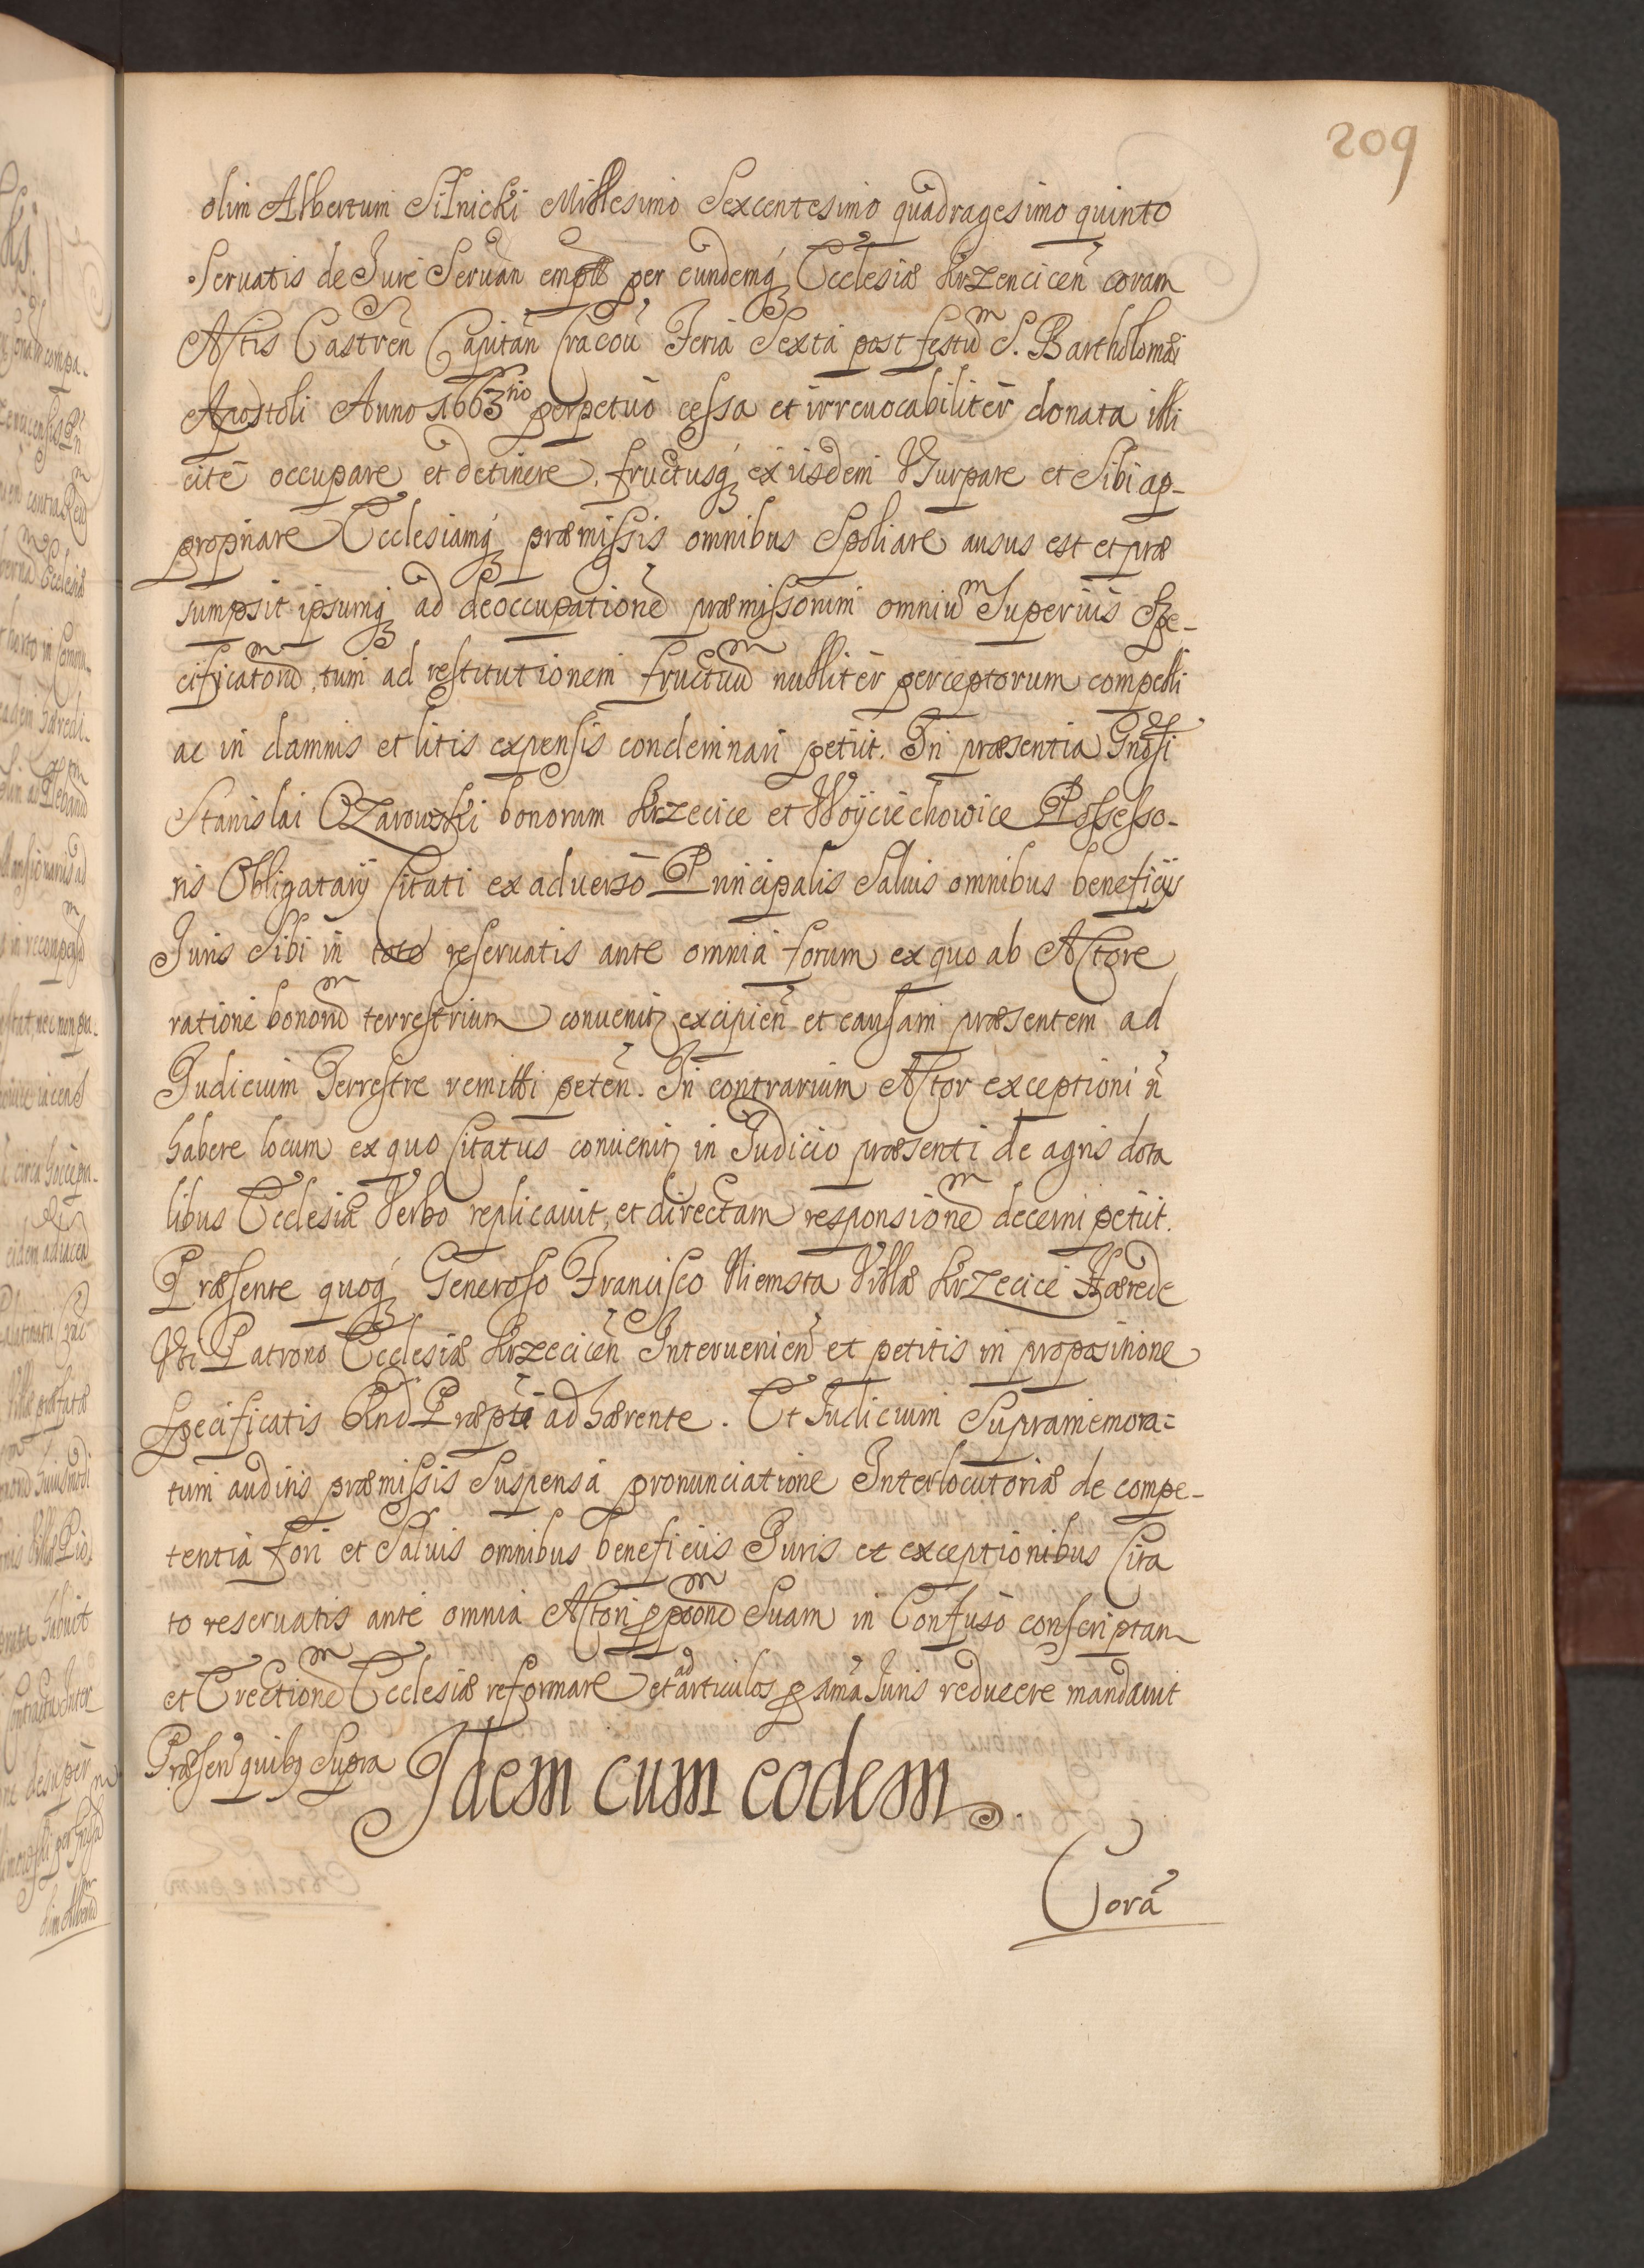 209
olim Albertum Silnicki Millesimo Sexcentesimo quadragesimo quinto
Servatis de Jure Servan̄ emptæ per eundemq́ꝫ Ecclesiæ Krzencicen̄ coram
Actis Castren̄ Capitan̄ Cracou̅ Feria Sexta post festū S. Bartholomæi
Apostoli Anno 1663ⁿⁱᵒ perpetuo cessa et irreuocabiliter donata illi
cite occupare et detinere, fructusq́ꝫ ex iisdem Vsurpare et Sibi ap-
propriare Ecclesiamq́ꝫ præmissis omnibus Spoliare ausus est et præ
sumpsit ipsumq́ꝫ ad deoccupationē præmissorum omniū Superius Spe-
cificatorū, tum ad restitutionem fructuū nulliter perceptorum compelli
ac in damnis et litis expensis condemnari petiit. In præsentia Gnosi
Stanislai Ozarowski bonorum Krzecice et Woyciechowice Possesso-
ris Obligatarij Citati ex aduerso Principalis Saluis omnibus beneficijs
Juris Sibi in toto reseruatis ante omnia forum ex quo ab Actore
ratione bonorū terrestrium conuenitꝫ excipien̄ et causam præsentem ad
Judicium Terrestre remitti peten̄. In contrarium Actor exceptioni n̄
habere locum ex quo Citatus conuenitꝫ in Judicio præsenti de agris dota
libus Ecclesiæ Verbo replicauit, et directam responsionē decerni petiit.
Præsente quoq́ꝫ Generoso Francisco Niemsta Villæ Krzecice Hærede
Vti Patrono Ecclesiæ Krzecicen̄ Interuenien̄ et petitis in propositione
Specificatis Rnd Præpti adhærente. Et Judicium Supramemora=
tum auditis præmissis Suspensa pronunciatione Interlocutoriæ de compe-
tentia fori et Saluis omnibus beneficiis Juris et exceptionibus Cita
to reseruatis ante omnia Actori ꝓponē Suam in Confuso conscriptam
et Erectionē Ecclesiæ reformare et ad articulos ꝑ sīma Juris reducere mandauit
Præsen̄ quibꝫ Supra Idem cum eodem.
Corā